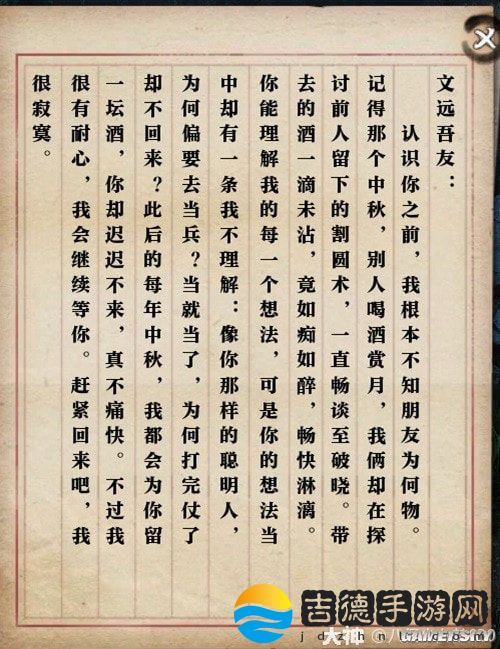 文远吾友：
认识你之前，我根本不知朋友为何物。
记得那个中秋，别人喝酒赏月，我俩却在探
讨前人留下的割圆术，一直畅谈至破晓。带
去的酒一滴未沾，竟如痴如醉，畅快淋漓。
你能理解我的每一个想法，可是你的想法当
中却有一条我不理解：像你那样的聪明人，
为何偏要去当兵？当就当了，为何打完仗了
却不回来？此后的每年中秋，我都会为你留
一坛酒，你却迟迟不来，真不痛快。不过我
很有耐心，我会继续等你。赶紧回来吧，我
很寂寞。
吉德手游网
大神